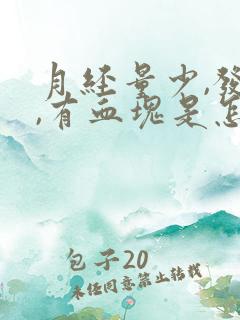 月經量少,發
,有血塊是怎
包子20
未經同意禁止轉載